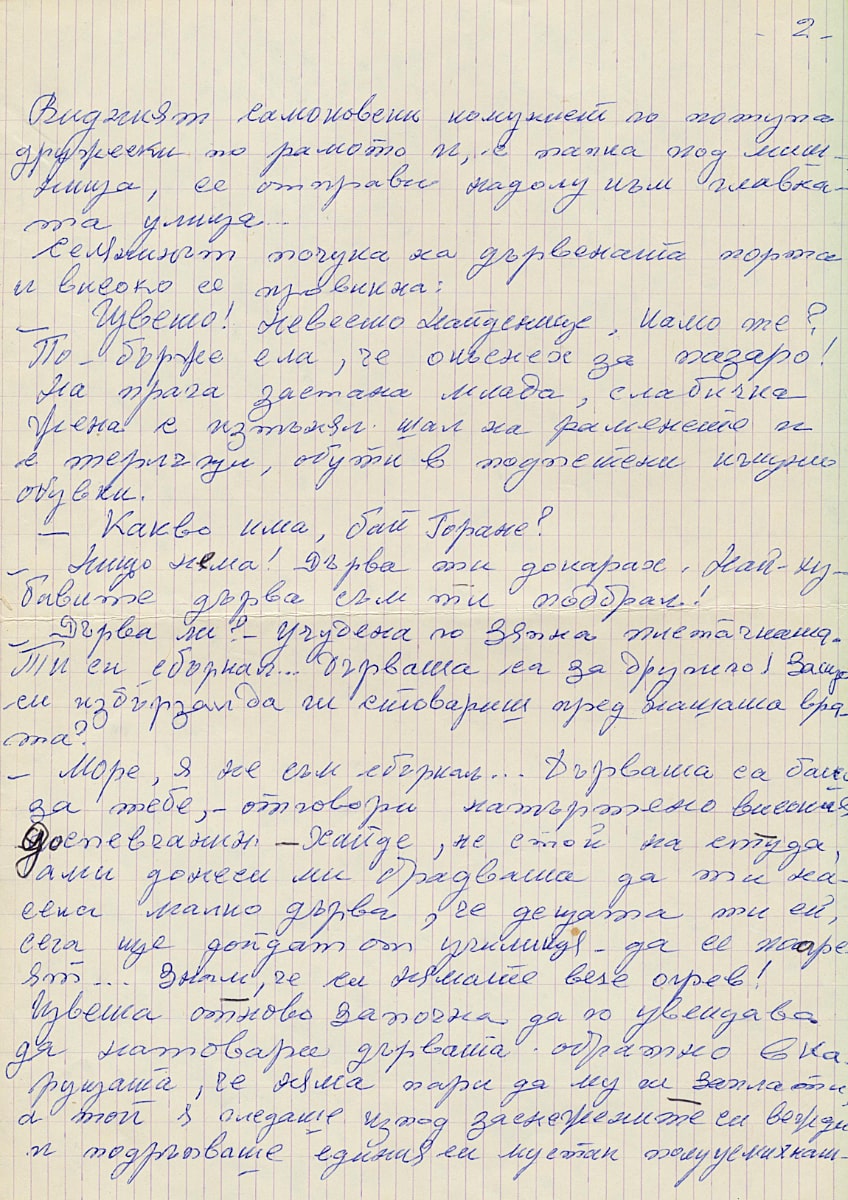 - 2 -
Видният самоковски комунист го потупа
дружески по рамото и, с папка под миш-
ница, се отправи надолу към главна-
та улица...
Селянинът почука на дървената порта
и високо се провикна:
– Цвето! Невесто Найденице, камо те?
По-бърже ела, че окъснех за пазаро!
На прага застана млада, слабичка
жена с изтънял шал на раменете и
с терлъци, обути в подпетени
обувки.
– Какво има, бай Горане?
– Нищо нема! Дърва ти докарах. Най-ху-
бавите дърва съм ти подбрал!
– Дърва ли? – учудено го зяпна плетачката.
Ти си сбъркал... Дървата са за другиго! Защо
си избързал да ги стовариш пред нашата вра-
та?
– Море, я не съм сбъркал... Дървата са баш
за тебе, – отговори натъртено високият
доспевчанин – Хайде, не стой на студа,
ами донеси ми брадвата да ти на-
сека малко дърва, че децата ти ей,
сега ще дойдат от училище – да се нагре-
ят... Знам, че си нямате веке огрев!
Цвета отново започна да го увещава
да натовари дървата обратно в ка-
руцата, че няма пари да му ги заплати,
а той я гледаше изпод заснежените си вежди
и подръпваше единия си мустак полуусмихнат.